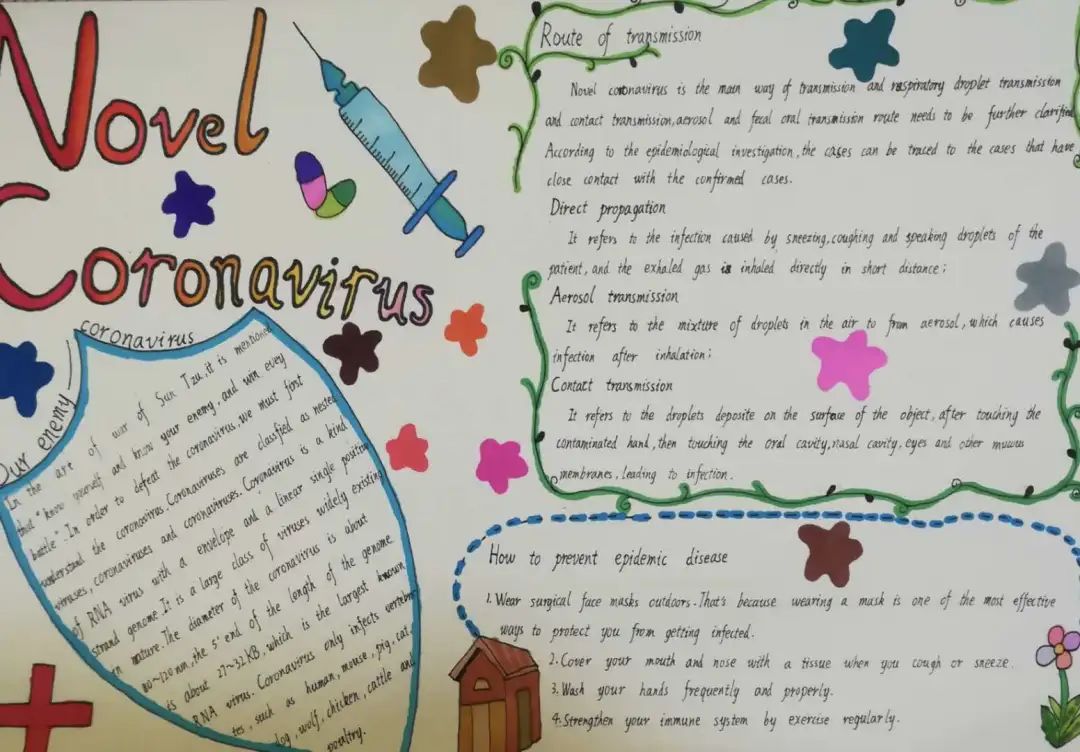 Novel
Coronavirus
Our enemy — coronavirus
In the art of war of Sun Tzu, it is mentioned
that "know yourself and know your enemy, and win evey
battle". In order to defeat the coronavirus, we must first
understand the coronavirus. Coronaviruses are classfied as nested
viruses, coronaviruses and coronaviruses. Coronavirus is a kind
of RNA virus with a envelope and a linear single positive
strand genome. It is a large class of viruses widely existing
in nature. The diameter of the coronavirus is about
80~120nm, the 5' end of the length of the genome
is about 27~32KB, which is the largest known
RNA virus. Coronavirus only infects vertebra
tes, such as human, mouse, pig, cat,
dog, wolf, chicken, cattle and
poultry.
Route of transmission
Novel coronavirus is the main way of transmission and respiratory droplet transmission
and contact transmission, aerosol and fecal oral transmission route needs to be further clarified
According to the epidemiological investigation, the cases can be traced to the cases that have
close contact with the confirmed cases.
Direct propagation
It refers to the infection caused by sneezing, coughing and speaking droplets of the
patient, and the exhaled gas is inhaled directly in short distance;
Aerosol transmission
It refers to the mixture of droplets in the air to from aerosol, which causes
infection after inhalation;
Contact transmission
It refers to the droplets deposite on the surface of the object, after touching the
contaminated hand, then touching the oral cavity, nasal cavity, eyes and other mucus
membranes, leading to infection.
How to prevent epidemic disease
1. Wear surgical face masks outdoors. That's because wearing a mask is one of the most effective
ways to protect you from getting infected.
2. Cover your mouth and nose with a tissue when you cough or sneeze.
3. Wash your hands frequently and properly.
4. Strengthen your immune system by exercise regularly.